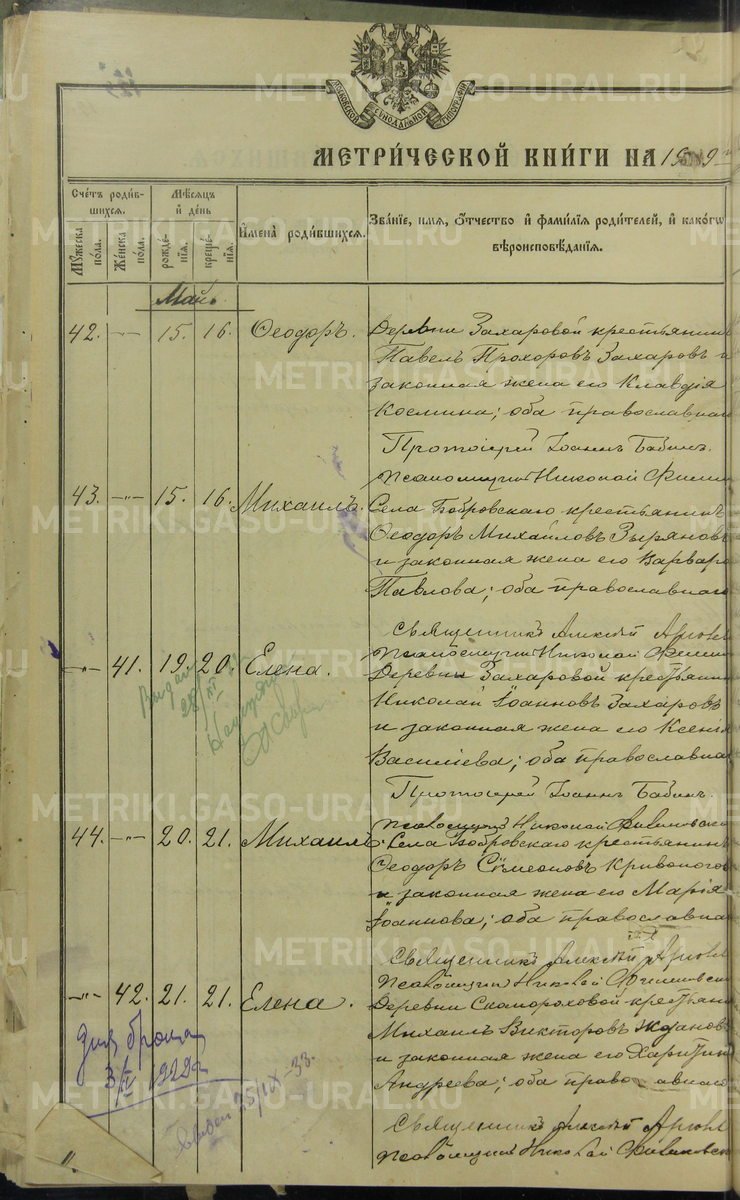 МОСКОВСКОЙ СѴНОДАЛЬНОЙ ТИПОГРАФІИ
МЕТРИ́ЧЕСКОЙ КНИ́ГИ НА 19 9
Счéтъ роди́в-
шихся.
Мꙋжеска пóла.
Жéнска пóла.
Мѣсяцъ
и день
рождé-
нїя.
крещé-
нїя.
Имена̀ роди́вшихся.
Зва́нїе, имя, Ѻтчество и фами́лїя роди́телей, и како́гѡ
вѣроисповѣ́данїя.
Май.
42. -„- 15. 16. Ѳеодоръ. Деревни Захаровой крестьянинъ
Павелъ Прохоровъ Захаровъ и
законная жена его Клавдія
Космина; оба православнаго
Протоіерей Іоаннъ Бабинъ.
Псаломщикъ Николай
43. -„- 15. 16. Михаилъ. Села Бобровскаго крестьянинъ
Ѳеодоръ Михайловъ Зыряновъ
и законная жена его Варвара
Павлова; оба православнаго
Священникъ Алексій
Псаломщикъ Николай
-„- 41. 19. 20. Елена. Деревни Захаровой крестьянинъ
Николай Іоанновъ Захаровъ
и законная жена его Ксенія
Василіева; оба православнаго
Протоіерей Іоаннъ Бабинъ.
Псаломщикъ Николай
44. -„- 20. 21. Михаилъ. Села Бобровскаго крестьянинъ
Ѳеодоръ Сѵмеоновъ Кривоногов
и законная жена его Марія
Іоаннова; оба православнаго
Священникъ Алексій
Псаломщикъ Николай
-„- 42. 21. 21. Елена. Деревни Скомороховой крестьянинъ
Михаилъ Викторовъ Ждановъ
и законная жена его Харитин
Андреева; оба право авнаго
Священникъ Алексій
Псаломщикъ Николай
Выдан
для брака
3/V 1929 г
25/IX-33.
METRIKI.GASO-URAL.RU